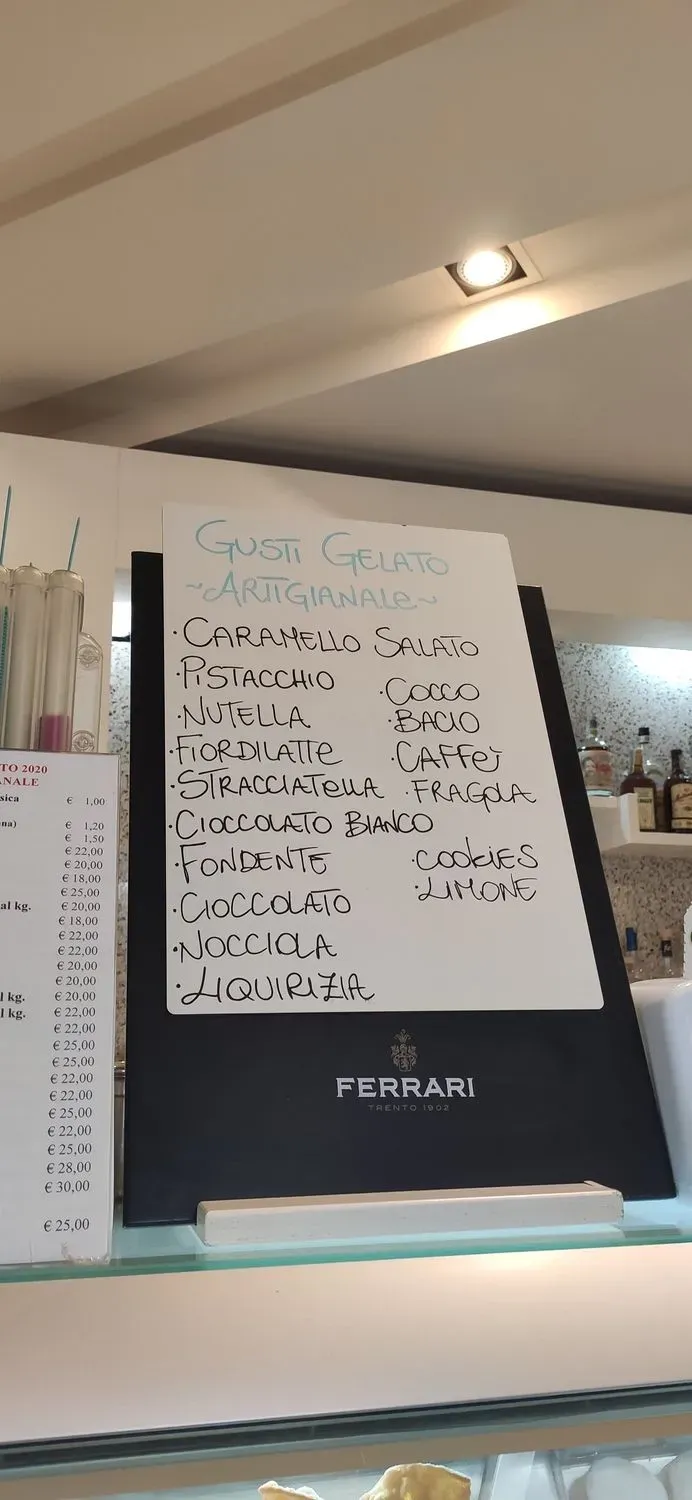 GUSTI GELATO
~ARTIGIANALE~
·CARAMELLO SALATO
·PISTACCHIO
·NUTELLA
·FIORDILATTE
·STRACCIATELLA
·CIOCCOLATO BIANCO
·FONDENTE
·CIOCCOLATO
·NOCCIOLA
·LIQUIRIZIA
·COCCO
·BACIO
·CAFFEì
·FRAGOLA
·COOKIES
·LIMONE
FERRARI
TRENTO 1902
TO 2020
ANALE
sica € 1,00
na) € 1,20
€ 1,50
€ 22,00
€ 20,00
€ 18,00
€ 25,00
al kg. € 20,00
€ 18,00
€ 22,00
€ 22,00
€ 20,00
€ 20,00
l kg. € 20,00
l kg. € 22,00
€ 22,00
€ 25,00
€ 25,00
€ 22,00
€ 22,00
€ 25,00
€ 22,00
€ 25,00
€ 28,00
€ 30,00
€ 25,00